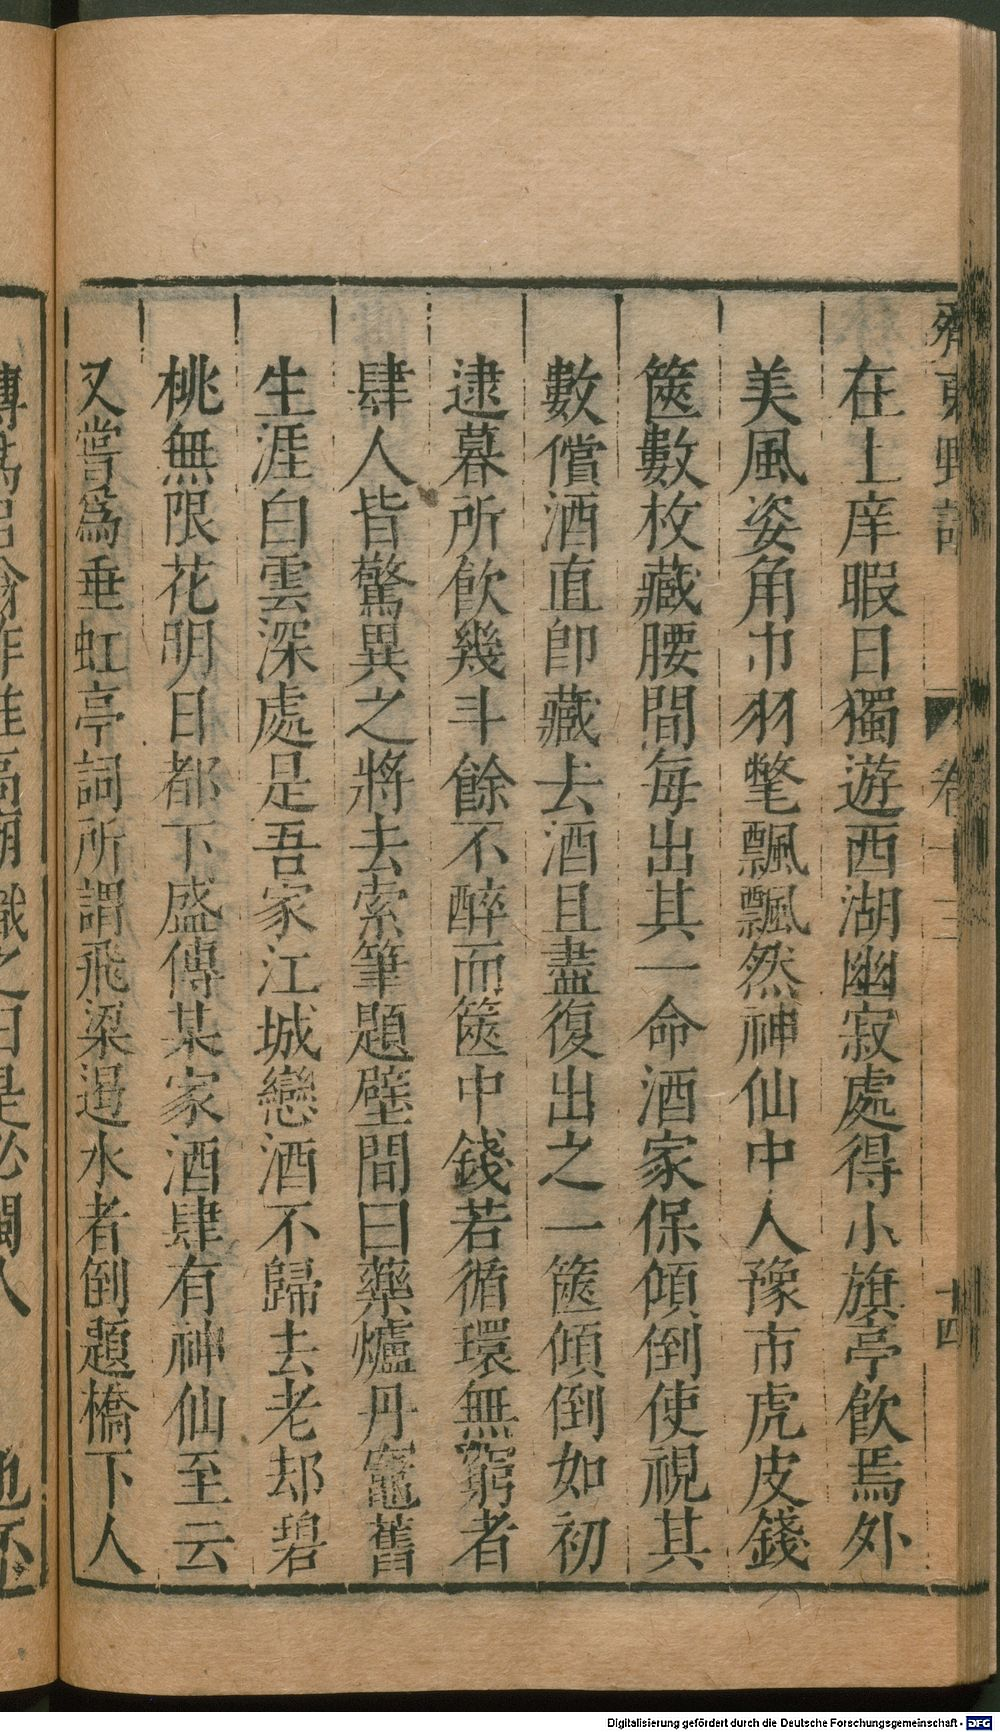 齊東野語 卷十三 十四
在上庠暇日獨遊西湖幽寂處得小旗亭飲焉外
美風姿角巾羽氅飄飄然神仙中人豫市虎皮錢
篋數枚藏腰間每出其一命酒家保傾倒使視其
數償酒直即藏去酒且盡復出之一篋傾倒如初
逮暮所飲幾斗餘不醉而篋中錢若循環無窮者
肆人皆驚異之將去索筆題壁間曰藥爐丹竈舊
生涯白雲深處是吾家江城戀酒不歸去老却碧
桃無限花明日都下盛傳某家酒肆有神仙至云
又嘗爲垂虹亭詞所謂飛梁遏水者倒題橋下人
Digitalisierung gefördert durch die Deutsche Forschungsgemeinschaft - DFG